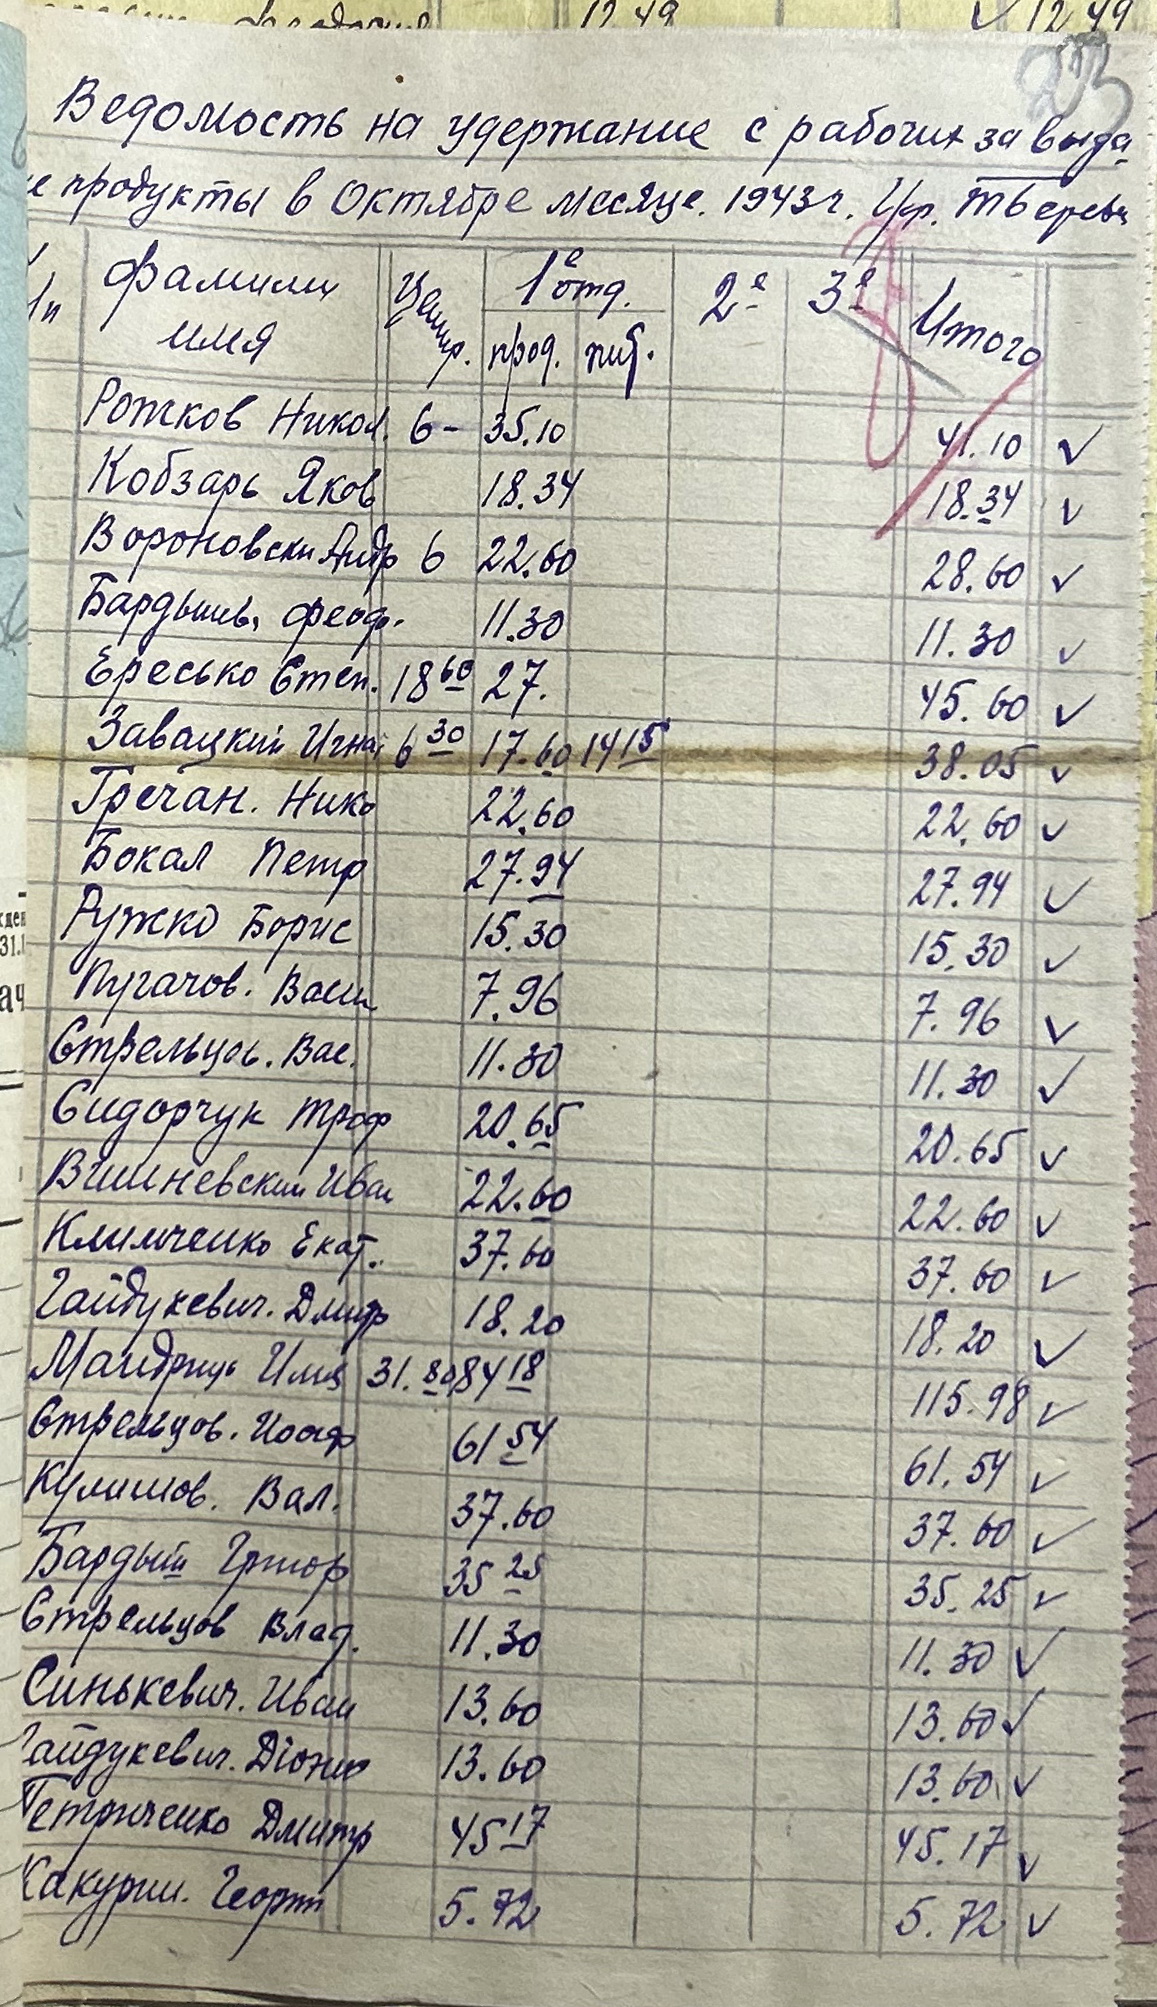 12 49 ✓ 12 49
203
Ведомость на удержание с рабочих за выда
е продукты в Октябре месяце. 1943 г. Укр. Тверевц
фамилии Центр. 1е отд. 2е 3е Итого
имя прод. пит.
Рожков Никол. 6 - 35.10 41.10 ✓
Кобзарь Яков 18.34 18.34 ✓
Вороновски Андр 6 22.60 28.60 ✓
Бардышев, Феод. 11.30 11.30 ✓
Ересько Степ. 18 60 27. 45.60 ✓
Завацкий Игна 6 30 17.60 14 15 38.05 ✓
Гречан. Нико 22.60 22.60 ✓
Бокал Петр 27.94 27.94 ✓
Ружко Борис 15.30 15.30 ✓
Пугачов. Васи 7.96 7.96 ✓
Стрельцов. Вас. 11.30 11.30 ✓
Сидорчук Троф 20.65 20.65 ✓
Вишневский Иван 22.60 22.60 ✓
Климченко Екат. 37.60 37.60 ✓
Гайдукевич. Дмитр 18.20 18.20 ✓
Мандрик 31.80 84 18 115.98 ✓
Стрельцов. Иосиф 61 54 61.54 ✓
Кулишов. Вал. 37.60 37.60 ✓
Бардыш Григор 35 25 35.25 ✓
Стрельцов Влад. 11.30 11.30 ✓
Синькевич. Иван 13.60 13.60 ✓
Гайдукевич. Діониз 13.60 13.60 ✓
Петриченко Дмитр 45 17 45.17 ✓
Какурин. Георги 5.72 5.72 ✓